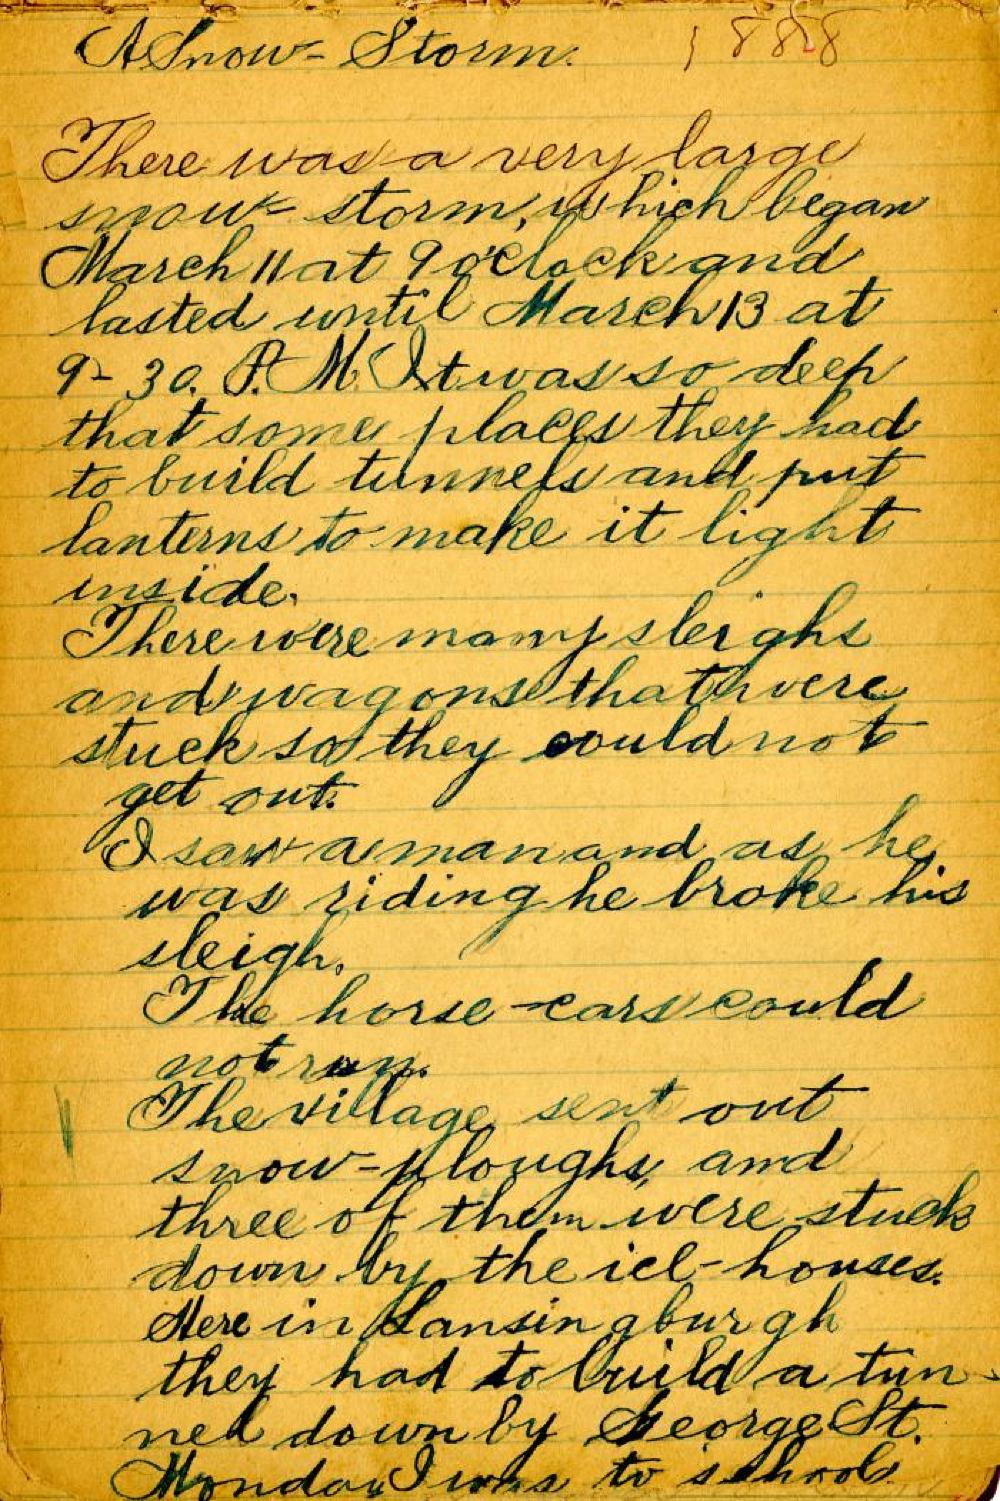 A Snow-Storm. 1888
There was a very large
snow-storm, which began
March 11 at 9 o'clock and
lasted until March 13 at
9-30. P. M. It was so deep
that some places they had
to build tunnels and put
lanterns to make it light
inside.
There were many sleighs
and wagons that were
stuck so they could not
get out.
I saw a man and as he
was riding he broke his
sleigh.
The horse-cars could
not run.
The village sent out
snow-ploughs, and
three of them were stuck
down by the ice-houses.
Here in Lansingburgh
they had to build a tun-
nel down by George St.
Monday I was to school.